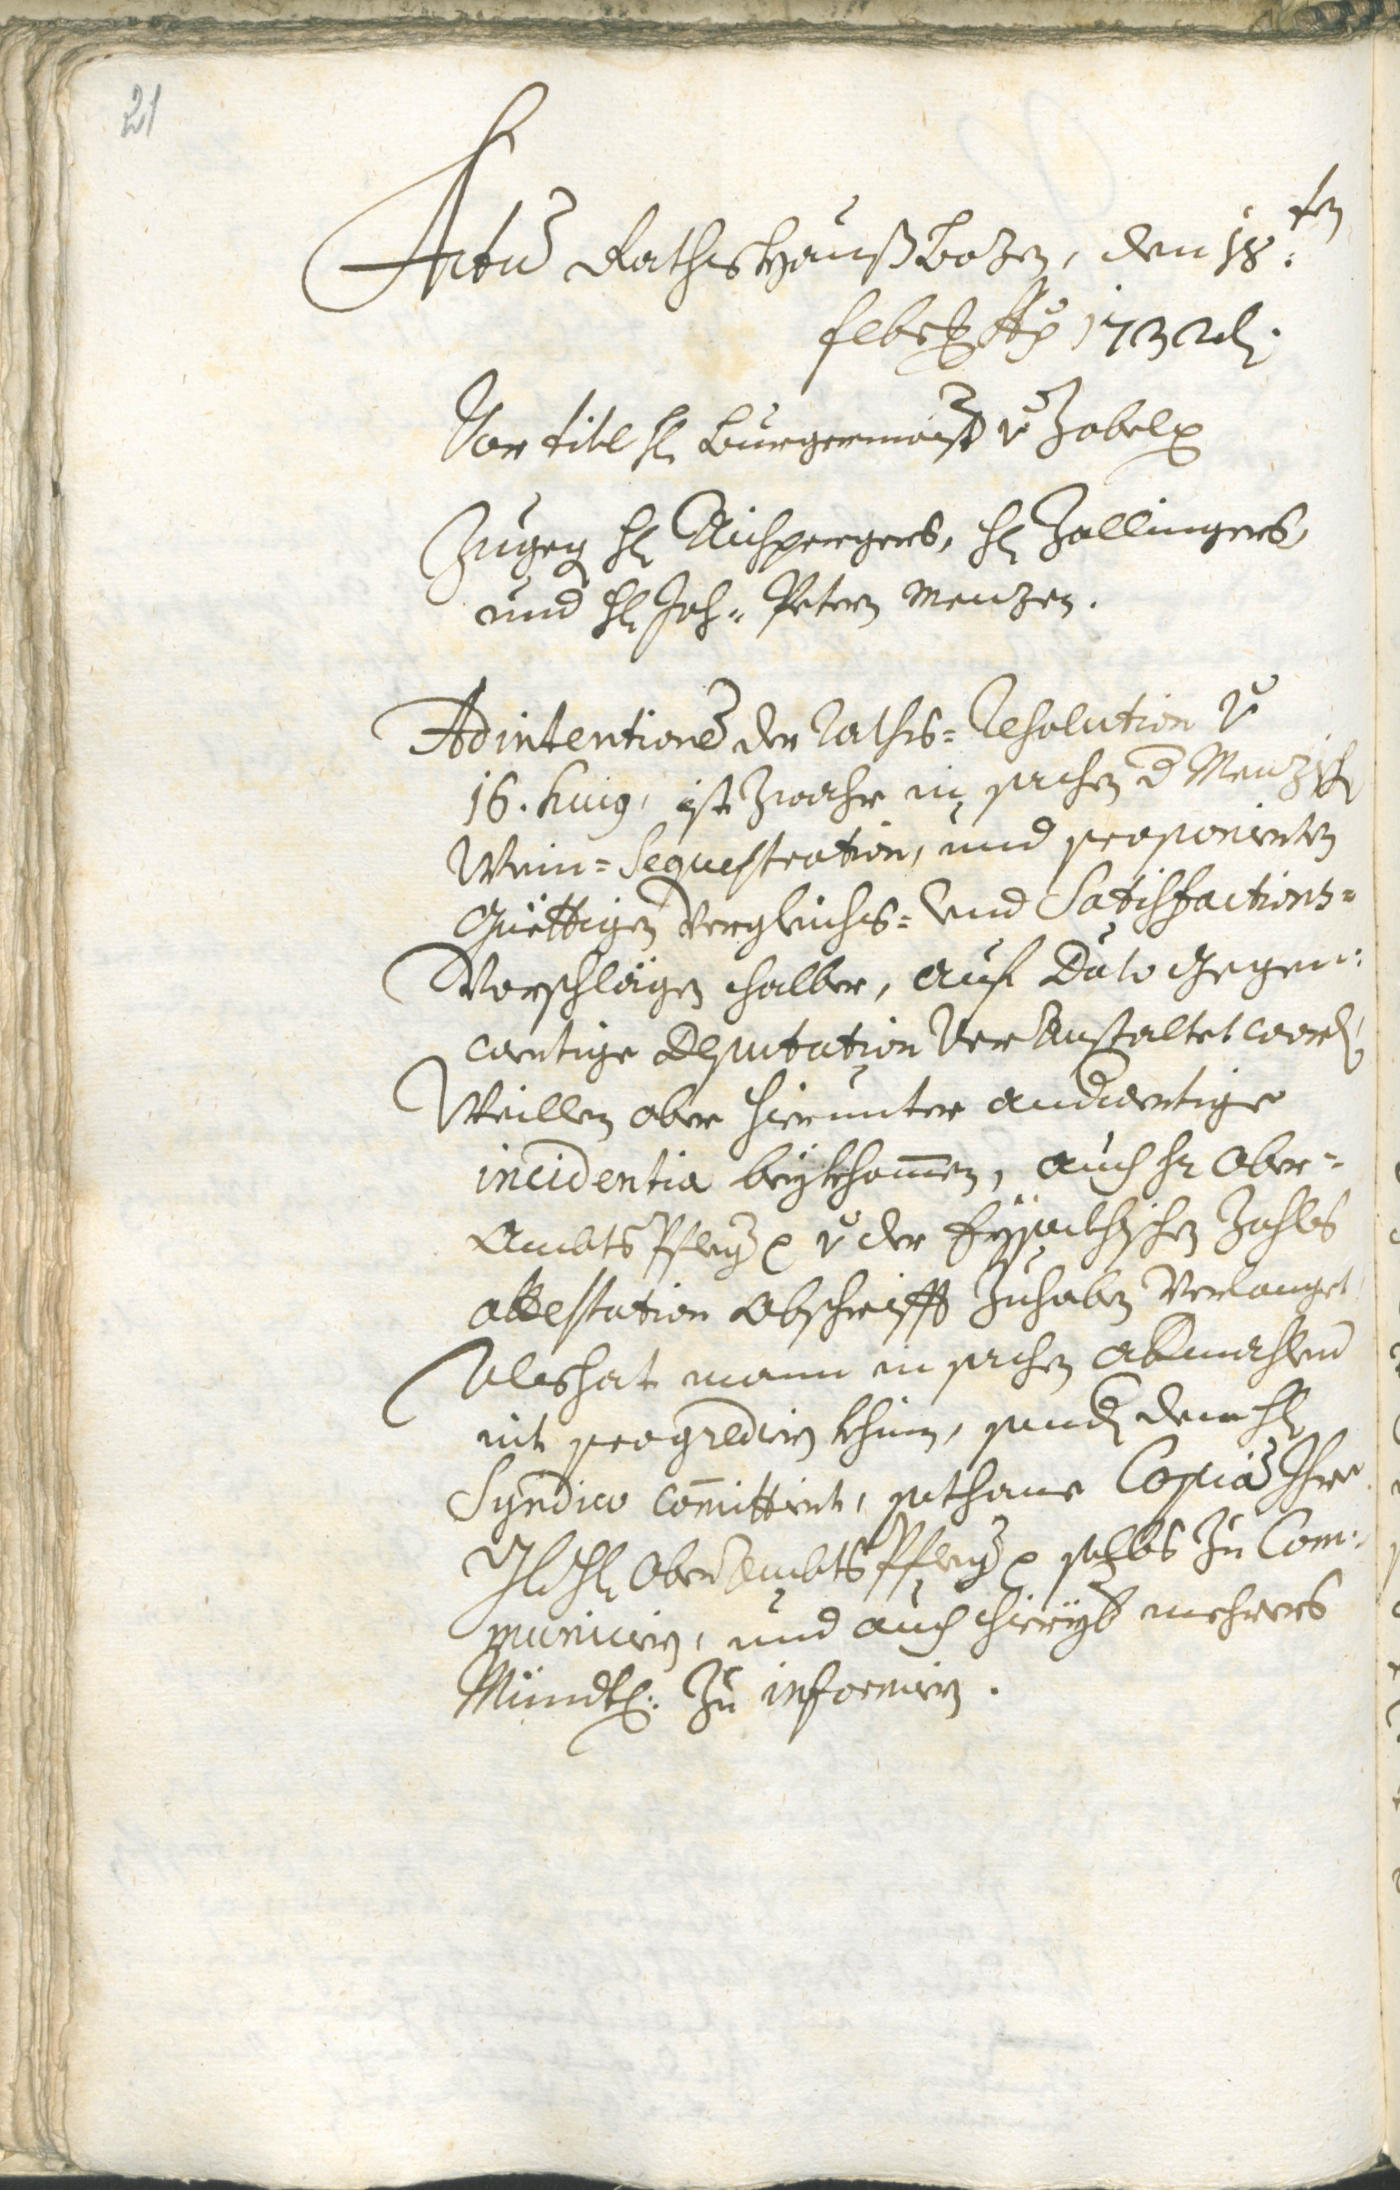 21
Actum Rathshauß Bozen, den 18.ten
febr: Ao 1732
Vor titl H. Burgermaister v. Zobel
Zugeg H. Aichpergers, H. Zallingers,
und H. Joh: Petern Menzen.
Ad intentionem der Raths=Resolution v.
16. huius, ist zwahr in sachen d. Menzisch
Wein=Sequestration, und proponierten
Güettigen Vergleichs= und Satisfactions=
Vorschlägen halber, auf Dato Gegen:
wertige Deputation Veranstaltet word,
Weillen aber hierunter anderwertige
incidentia beykhommen, auch H. Ober=
Ambts Pfleg v. der Zahls
attestation Abschrifft zuhaben Verlanget,
Als hat mann in sachen allmahlen
nit progredirn khinen, sond dem H.
Syndico committirt, sothane Copiam Ihro
H. Ober Ambts Pfleg selbs zu Com:
municirn, und auch hieryb mehrers
Mündtl: zu informirn.